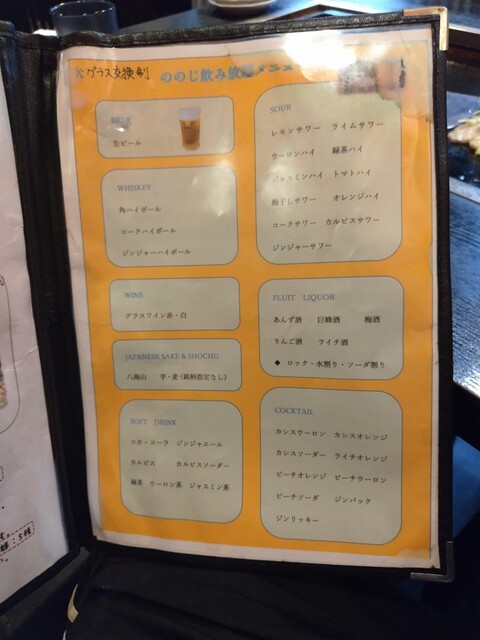 グラス交換制
ののじ飲み放題メニュー
BEER
生ビール
WHISKEY
角ハイボール
コークハイボール
ジンジャーハイボール
WINE
グラスワイン赤・白
JAPANESE SAKE & SHOCHU
八海山 芋・麦(銘柄指定なし)
SOFT DRINK
コカ・コーラ ジンジャエール
カルピス カルピスソーダー
緑茶 ウーロン茶 ジャスミン茶
SOUR
レモンサワー ライムサワー
ウーロンハイ 緑茶ハイ
ジャスミンハイ トマトハイ
梅干しサワー オレンジハイ
コークサワー カルピスサワー
ジンジャーサワー
FRUIT LIQUOR
あんず酒 巨峰酒 梅酒
りんご酒 ライチ酒
◆ ロック・水割り・ソーダ割り
COCKTAIL
カシスウーロン カシスオレンジ
カシスソーダー ライチオレンジ
ピーチオレンジ ピーチウーロン
ピーチソーダ ジンバック
ジンリッキー